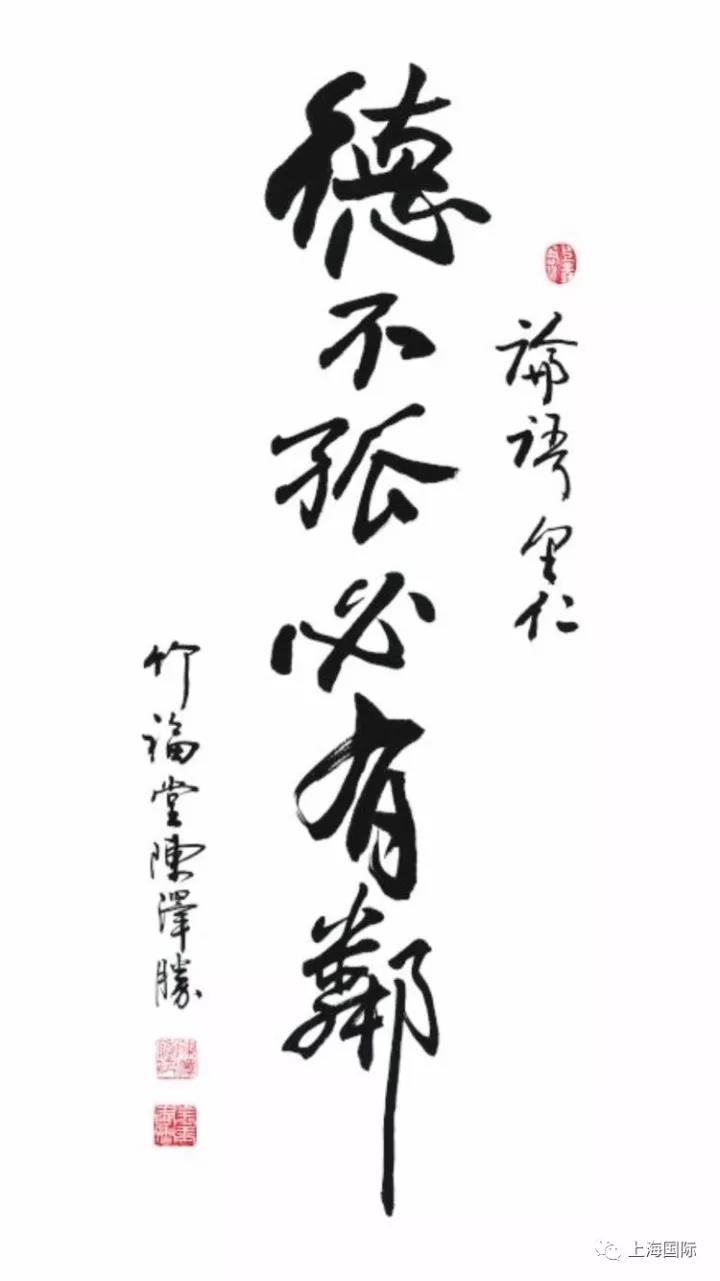 論語里仁
德不孤必有鄰
竹福堂陳澤勝
上海国际